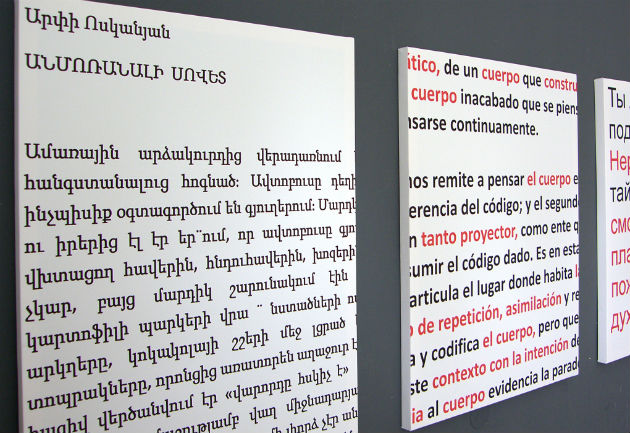 Արփի Ոսկանյան
ԱՆՄՈՌԱՆԱԼԻ ՍՈՎԵՏ
Ամառային արձակուրդից վերադառնում
հանգստանալուց հոգնած։ Ավտոբուսը դեղի
ինչպիսիք օգտագործում են գյուղերում։ Մարդկ
ու իրերից էլ էր եր¨ում, որ ավտոբուսը գյո
վխտացող հավերին, հնդուհավերին, խոզերին
չկար, բայց մարդիկ շարունակում էին
կարտոֆիլի պարկերի վրա ¨ նստածների ո
արկղերը, կոկակոլայի շշերի մեջ լցրած
տոպրակները, որոնցից առատորեն աղաջուր է
հազիվ վերծանվում էր «վարորդը հսկիչ է»
վաղ միջնադարյա
փորձ չէր ան
ático, de un cuerpo que constru
cuerpo inacabado que se piens
nsarse continuamente.
nos remite a pensar el cuerpo e
erencia del código; y el segund
n tanto proyector, como ente q
sumir el código dado. Es en esta
articula el lugar donde habita l
o de repetición, asimilación y re
a y codifica el cuerpo, pero que
ste contexto con la intención de
ia al cuerpo evidencia la parado
Ты
под
Нер
тай
смо
пла
пох
дух